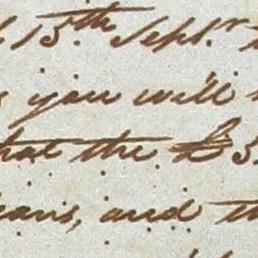 15th Septr
you will
that the £3
and th